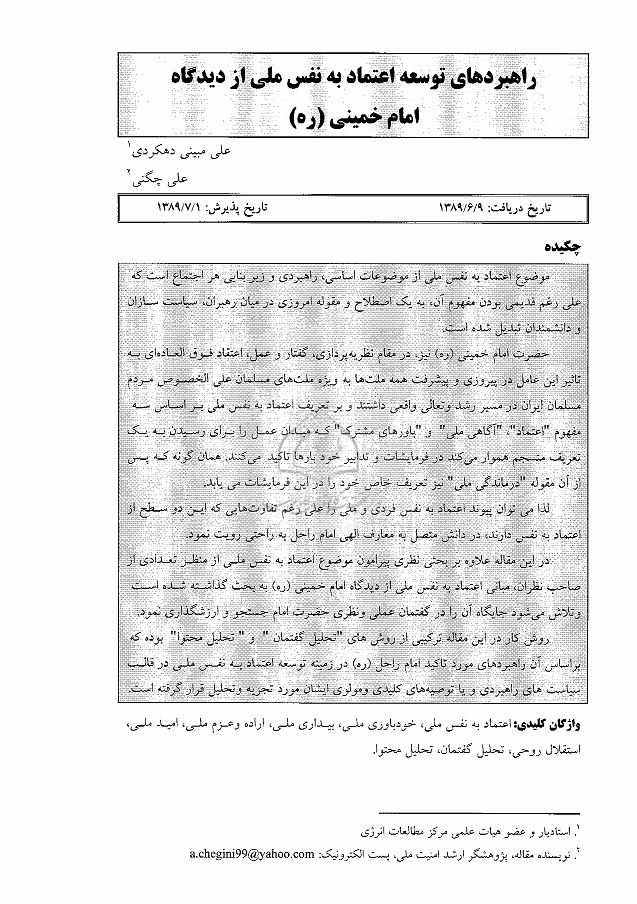 راهبردهای توسعه اعتماد به نفس ملی از دیدگاه
امام خمینی (ره)
علی مبینی دهکردی۱
علی چگنی۲
تاریخ دریافت: ۱۳۸۹/۶/۹ تاریخ پذیرش: ۱۳۸۹/۷/۱
چکیده
موضوع اعتماد به نفس ملی از موضوعات اساسی، راهبردی و زیر بنایی هر اجتماع است که
علی رغم قدیمی بودن مفهوم آن، به یک اصطلاح و مقوله امروزی در میان رهبران، سیاست سازان
و دانشمندان تبدیل شده است.
حضرت امام خمینی (ره) نیز، در مقام نظریه‌پردازی، گفتار و عمل، اعتقاد فوق العاده‌ای به
تاثیر این عامل در پیروزی و پیشرفت همه ملت‌ها به ویژه ملت‌های مسلمان علی الخصوص مردم
مسلمان ایران در مسیر رشد وتعالی واقعی داشتند و بر تعریف اعتماد به نفس ملی بر اساس سه
مفهوم "اعتماد"، "آگاهی ملی" و "باورهای مشترک" که میدان عمل را برای رسیدن به یک
تعریف منسجم هموار می‌کند در فرمایشات و تدابیر خود بارها تاکید می‌کنند. همان گونه که پس
از آن مقوله "درماندگی ملی" نیز تعریف خاص خود را در این فرمایشات می یابد.
لذا می توان پیوند اعتماد به نفس فردی و ملی را علی رغم تفاوت‌هایی که این دو سطح از
اعتماد به نفس دارند، در دانش متصل به معارف الهی امام راحل به راحتی رویت نمود.
در این مقاله علاوه بر بحثی نظری پیرامون موضوع اعتماد به نفس ملی از منظر تعدادی از
صاحب نظران، مبانی اعتماد به نفس ملی از دیدگاه امام خمینی (ره) به بحث گذاشته شده است
وتلاش می‌شود جایگاه آن را در گفتمان عملی ونظری حضرت امام جستجو و ارزشگذاری نمود.
روش کار در این مقاله ترکیبی از روش های "تحلیل گفتمان " و " تحلیل محتوا" بوده که
براساس آن راهبردهای مورد تاکید امام راحل (ره) در زمینه توسعه اعتماد به نفس ملی در قالب
سیاست های راهبردی و یا توصیه‌های کلیدی ومولوی ایشان مورد تجزیه وتحلیل قرار گرفته است.
واژگان کلیدی: اعتماد به نفس ملی، خودباوری ملی، بیداری ملی، اراده وعزم ملی، امید ملی،
استقلال روحی، تحلیل گفتمان، تحلیل محتوا.
۱. استادیار و عضو هیات علمی مرکز مطالعات انرژی
۲. نویسنده مقاله، پژوهشگر ارشد امنیت ملی، پست الکترونیک: a.chegini99@yahoo.com